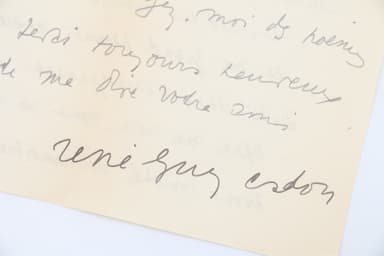 moi des poèmes
serai toujours heureux
de me dire votre ami
rené guy cadou